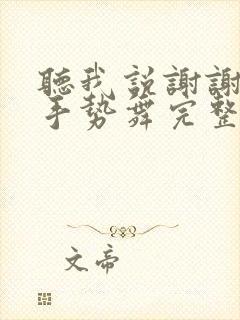 聽我説謝謝
手勢舞完整
文帝